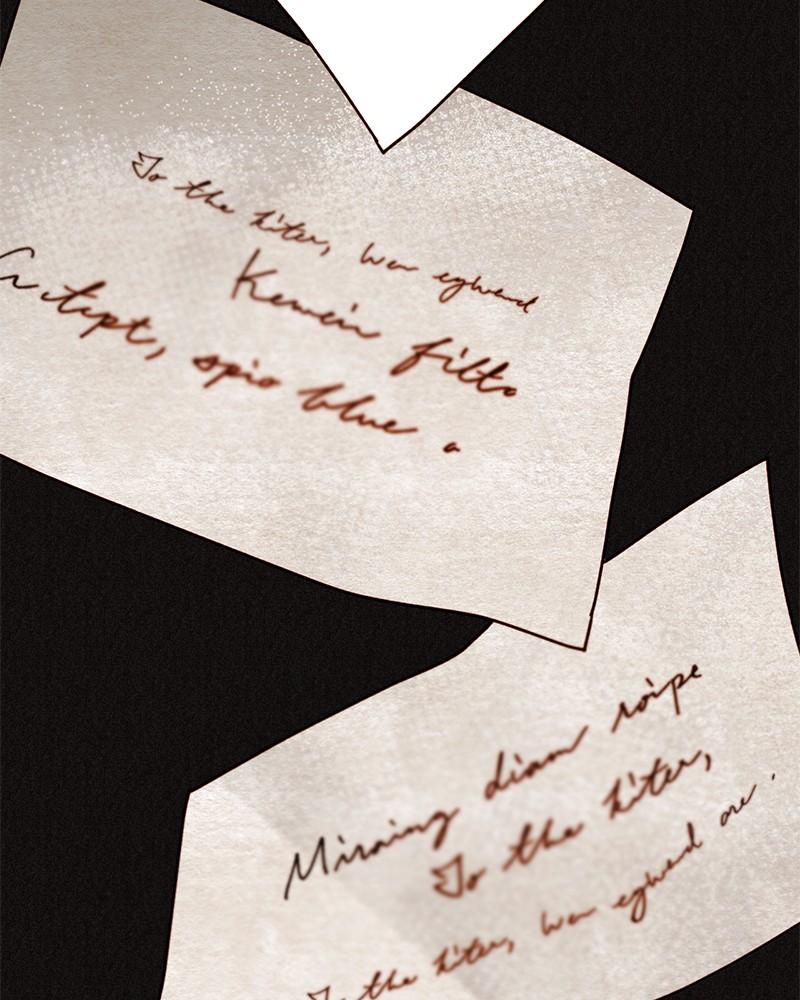 To the hiter, wer eghend
Kemein filto
tipt, spio blue a
Miraing diam roipe
To the hiter,
To the hiter, wer eghend are .